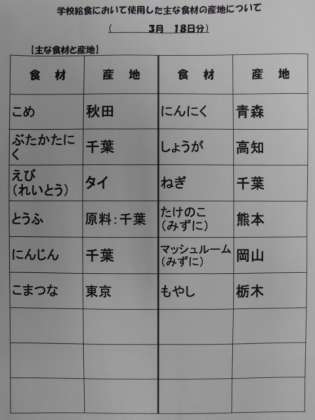 学校給食において使用した主な食材の産地について
( 3月 18日分)
[主な食材と産地]
食材 産地 食材 産地
こめ 秋田 にんにく 青森
ぶたかたに
く 千葉 しょうが 高知
えび
(れいとう) タイ ねぎ 千葉
とうふ 原料:千葉 たけのこ
(みずに) 熊本
にんじん 千葉 マッシュルーム
(みずに) 岡山
こまつな 東京 もやし 栃木